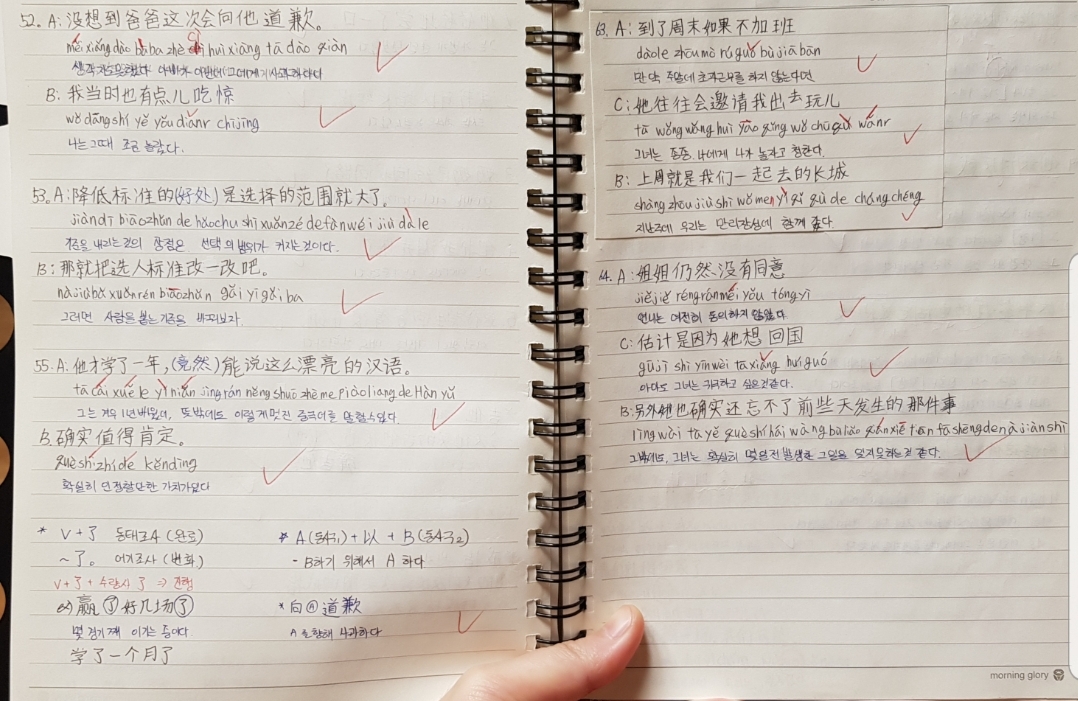 52. A: 没想到爸爸这次会向他道歉。
méi xiǎng dào bàba zhè cì huì xiàng tā dào qiàn
B: 我当时也有点儿吃惊
wǒ dāng shí yě yǒu diǎnr chījīng
나는 그때 조금 놀랐다.
53. A: 降低标准的(好处)是选择的范围就大了。
jiàndī biāozhǔn de hǎochu shì xuǎnzé de fànwéi jiù dà le
기준을 내리는 것의 장점은 선택의 범위가 커지는 것이다.
B: 那就把选人标准改一改吧。
nà jiù bǎ xuǎn rén biāozhǔn gǎi yi gǎi ba
그러면 사람을 뽑는 기준을 바꿔보자.
55. A: 他才学了一年,(竟然)能说这么漂亮的汉语。
tā cái xué le yì nián jìng rán néng shuō zhè me piàoliang de Hàn yǔ
그는 겨우 1년 배웠는데, 뜻밖에도 이렇게 멋진 중국어를 말할 수 있다.
B. 确实值得肯定。
què shí zhí de kěndìng
확실히 인정할만한 가치가 있다
* V + 了 동태조사 (완료)
~了。 어기조사 (변화)
V + 了 + 수량사 了 ⇒ 진행
ex) 赢了好几场了
몇 경기째 이기는 중이다
学了一个月了
* A (동사구1) + 以 + B (동사구2)
- B하기 위해서 A 하다
* 向 A 道歉
A 를 향해 사과하다
63. A: 到了周末如果不加班
dàole zhōumò rú guǒ bù jiā bān
만약 주말에 초과근무를 하지 않는다면
C: 她往往会邀请我出去玩儿
tā wǎng wǎng huì yāo qǐng wǒ chū qù wánr
그녀는 종종 나에게 나가 놀자고 청한다.
B: 上周就是我们一起去的长城
shàng zhōu jiù shì wǒ men yì qǐ qù de cháng chéng
지난주에 우리는 만리장성에 함께 갔다.
64. A: 姐姐仍然没有同意
jiějiě réng rán méi yǒu tóng yì
언니는 여전히 동의하지 않았다.
C: 估计是因为她想回国
gū jì shì yīn wèi tā xiǎng huí guó
아마도 그녀는 귀국하고 싶은 것 같다.
B: 另外她也确实还忘不了前些天发生的那件事
lìng wài tā yě què shí hái wàng bù liǎo qián xiē tiān fā shēng de nà jiàn shì
그밖에도, 그녀는 확실히 몇일전 발생한 그일을 잊지 못하는 것 같다.
morning glory